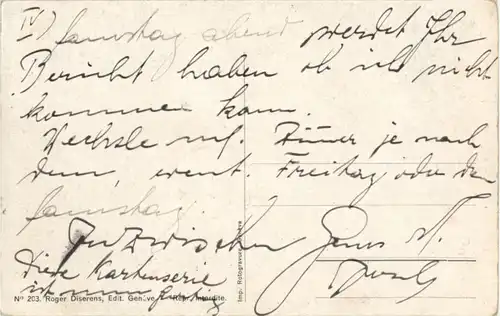 IV)
Samstag abend werdet Ihr
Bericht haben ob ich nicht
kommen kann.
Wechsle mf. Zimmer je nach
dem, event. Freitag oder den
Samstag.
Inzwischen Gruss
Diese Kartenserie
ist nun fertig
Nº 203. Roger Diserens, Edit. Genève. Repr. interdite.
Imp. Rotogravure